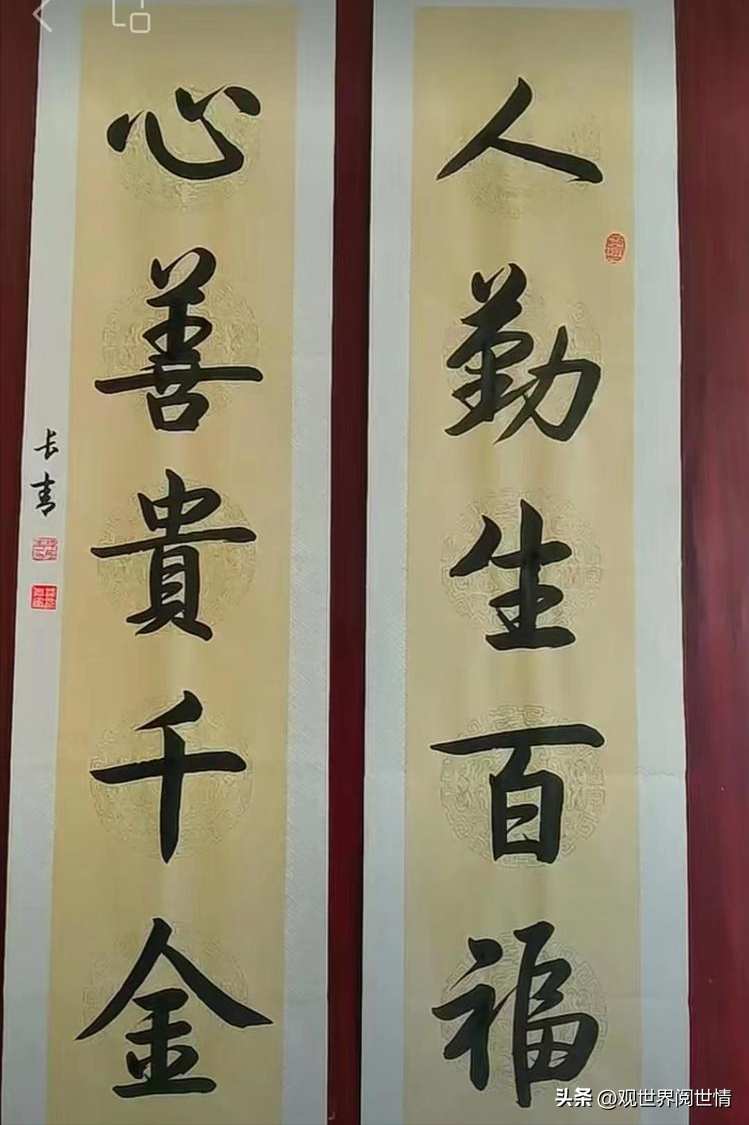 人勤生百福
心善貴千金
长青
头条 @观世界阅世情